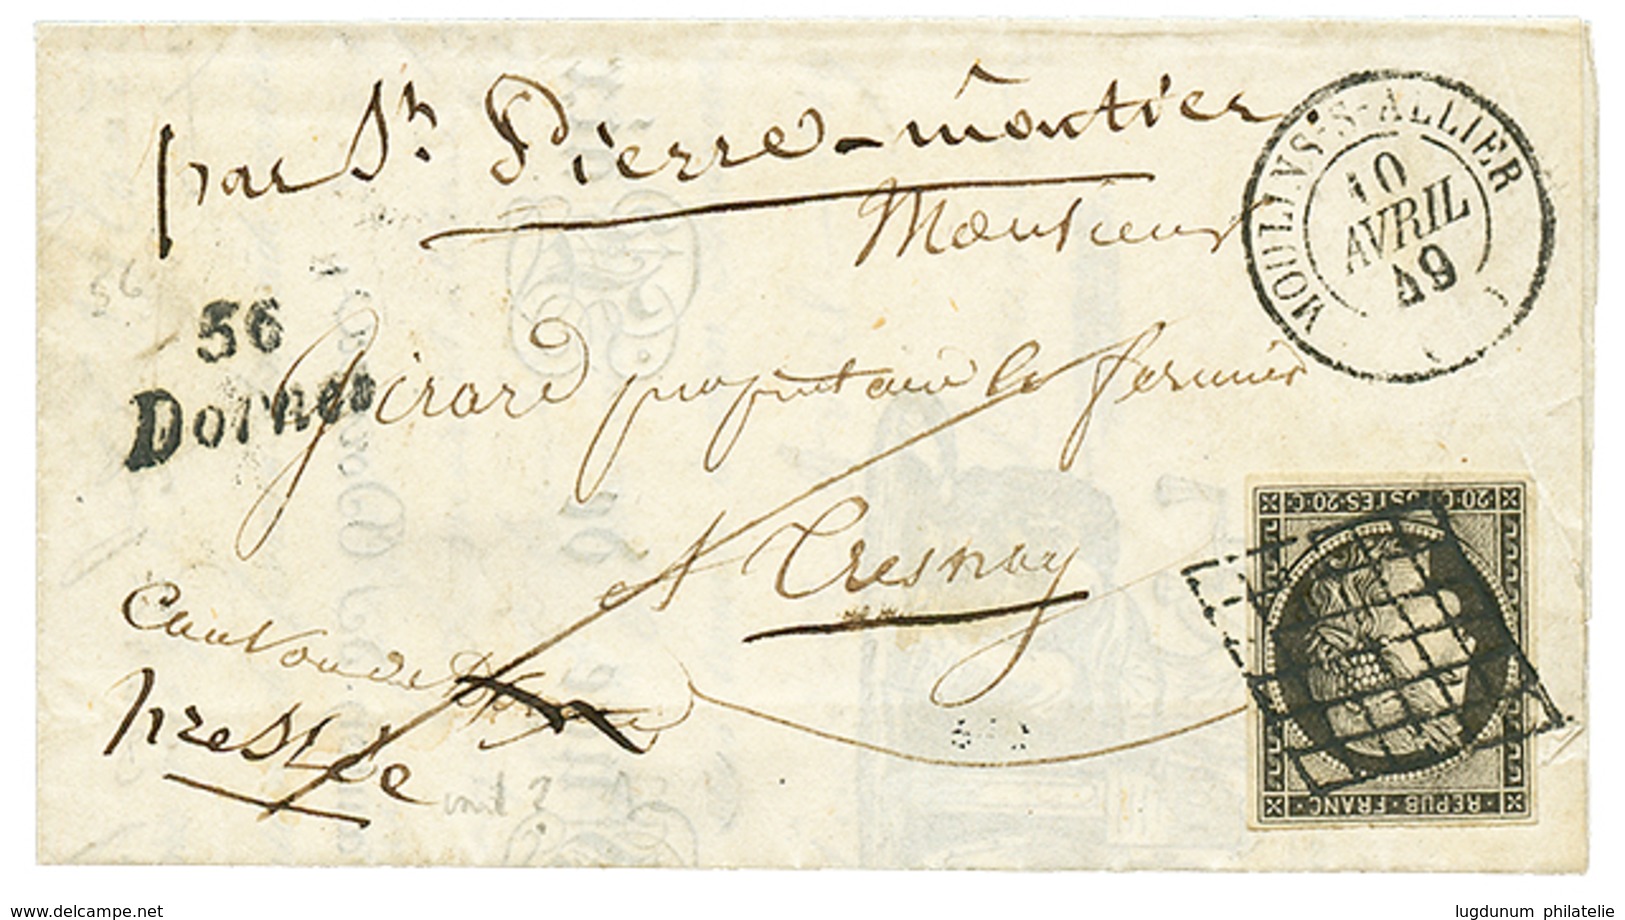 par St Pierre-moutier.
Monsieur
MOULINS-S-ALLIER
10
AVRIL
49
56
56
Dornes
Girard proprietaire le fermier
A Tresnay
Canton de
pressée
20·C·POSTES·20·C
REPUB·FRANC
www.delcampe.net
lugdunum philatelie